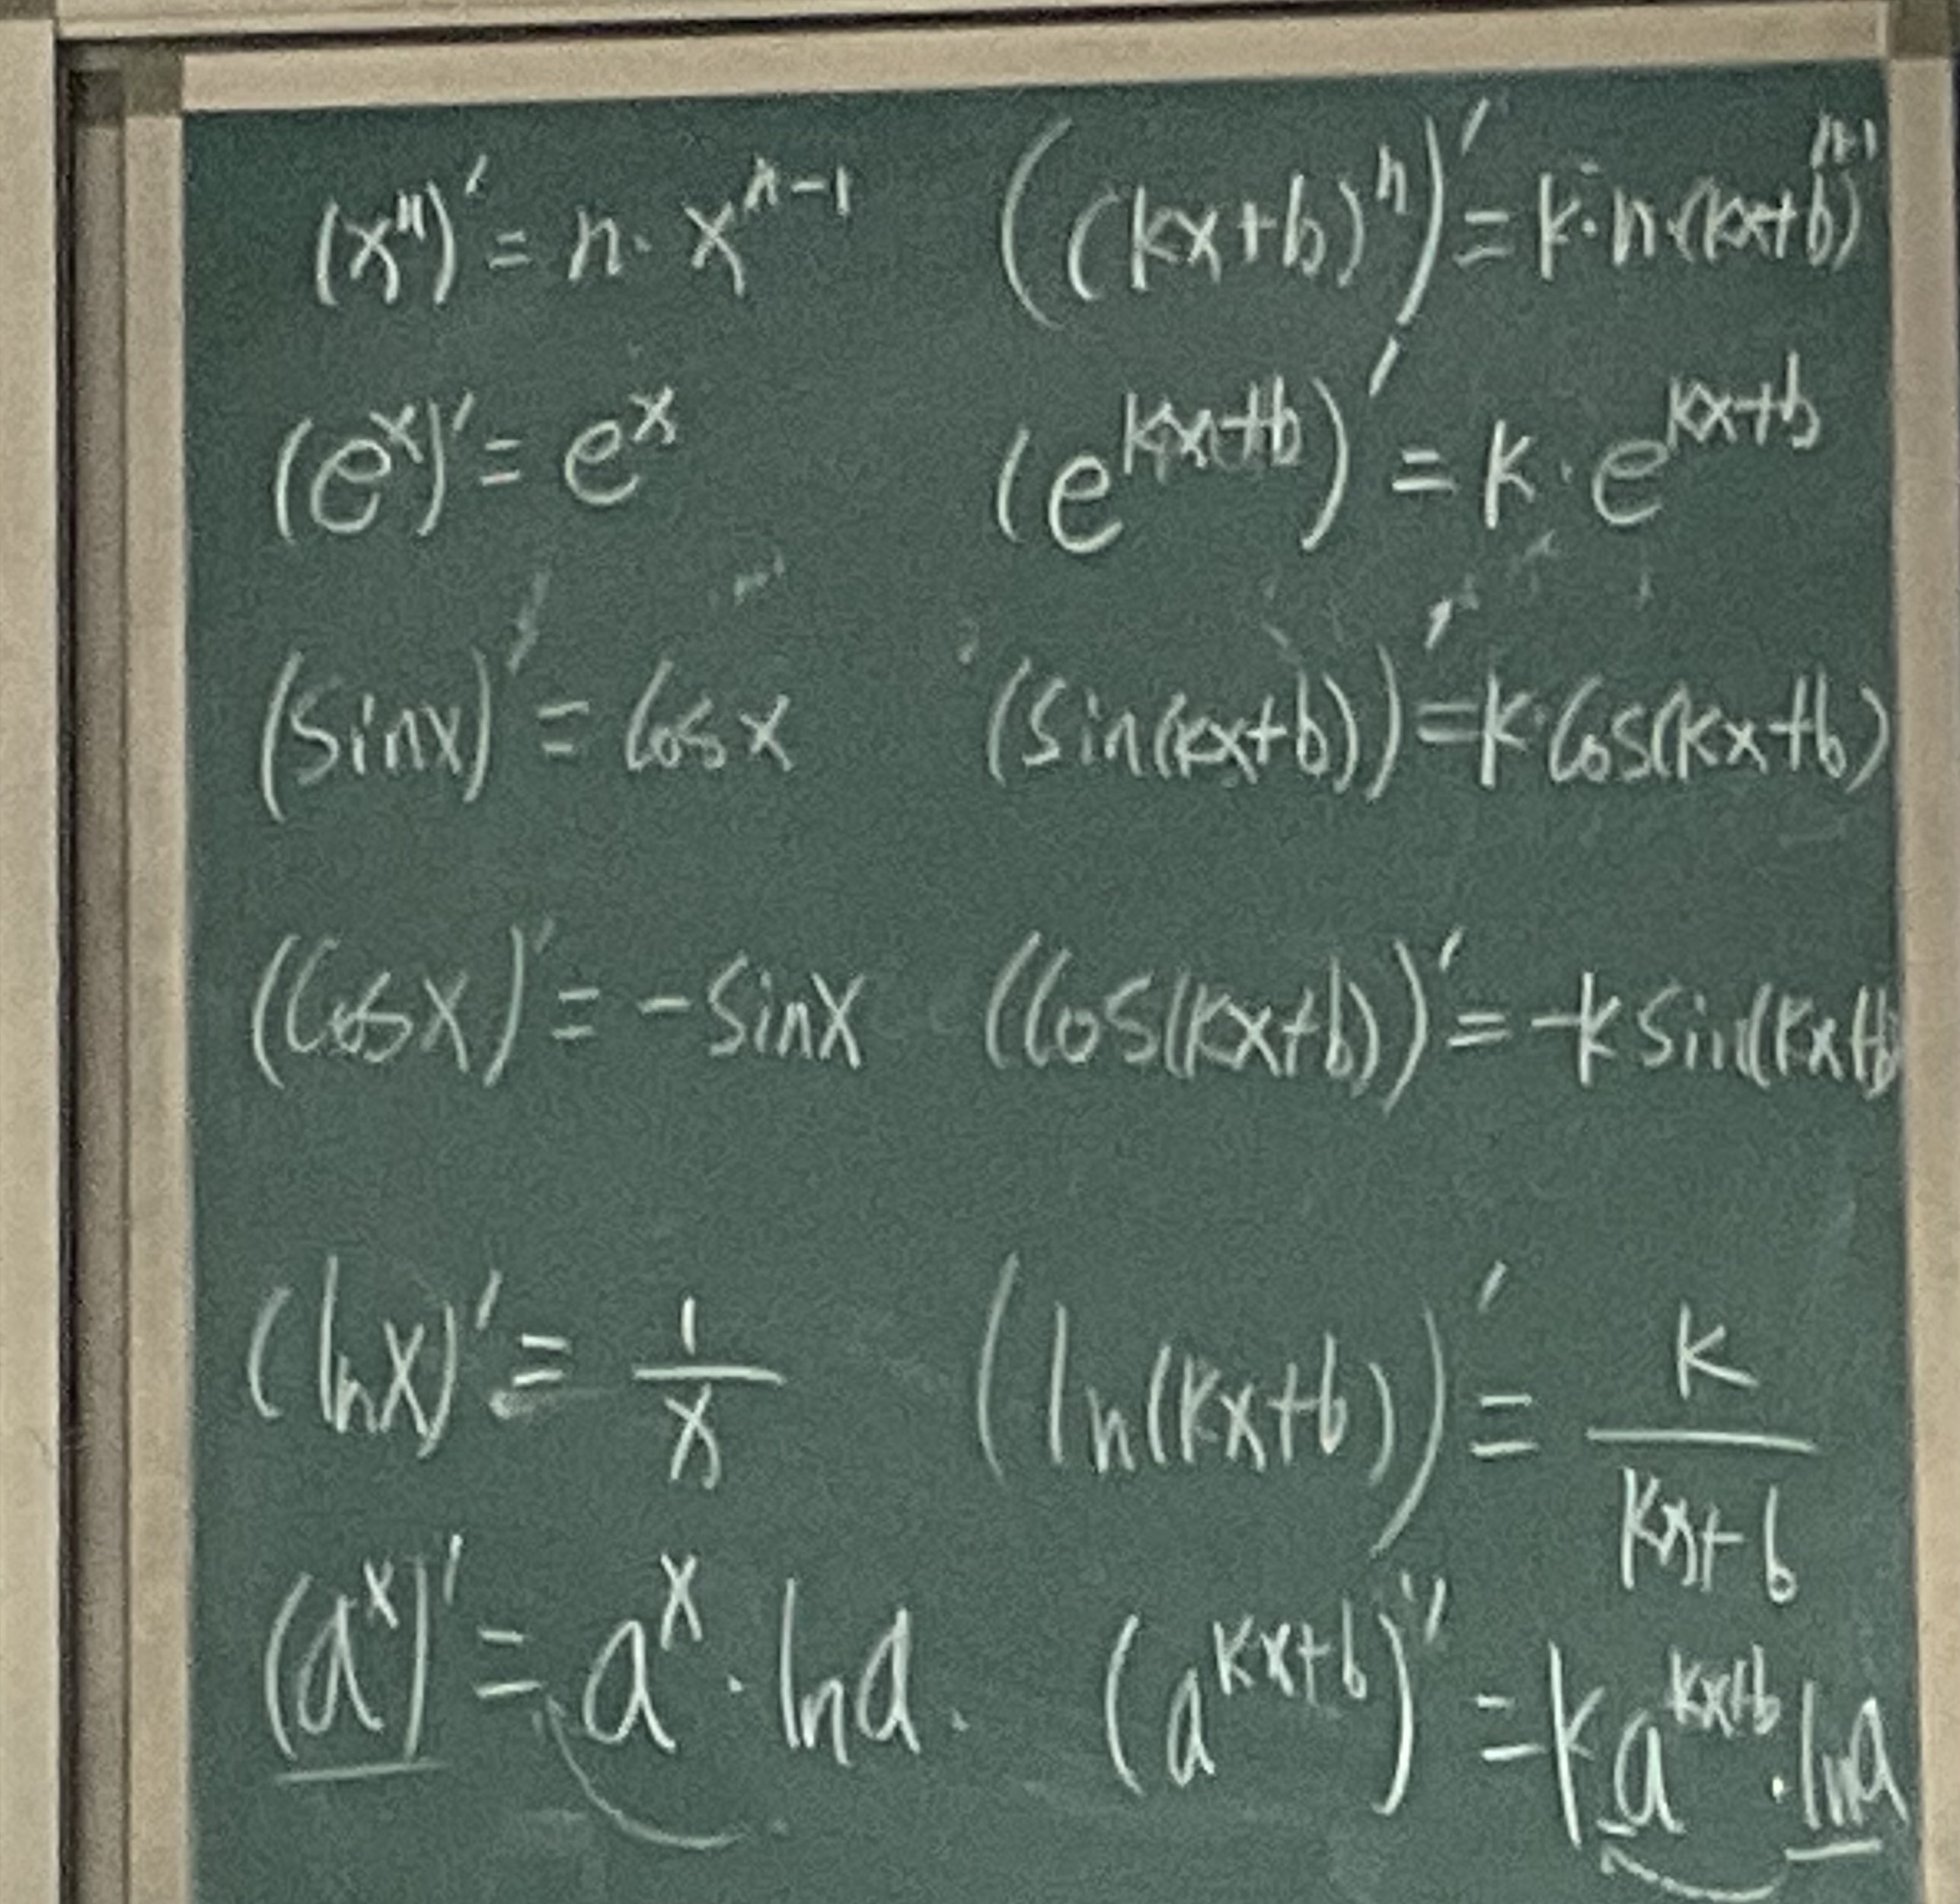 (xⁿ)′ = n · xⁿ⁻¹ ((kx+b)ⁿ)′ = k·n·(kx+b)ⁿ⁻¹
(eˣ)′ = eˣ (e^{kx+b})′ = k · e^{kx+b}
(sinx)′ = cosx (sin(kx+b))′ = k·cos(kx+b)
(cosx)′ = -sinx (cos(kx+b))′ = -ksin(kx+b
(lnx)′ = 1/x (ln(kx+b))′ = k/(kx+b)
(aˣ)′ = aˣ · lna. (a^{kx+b})′ = ka^{kx+b} · lna